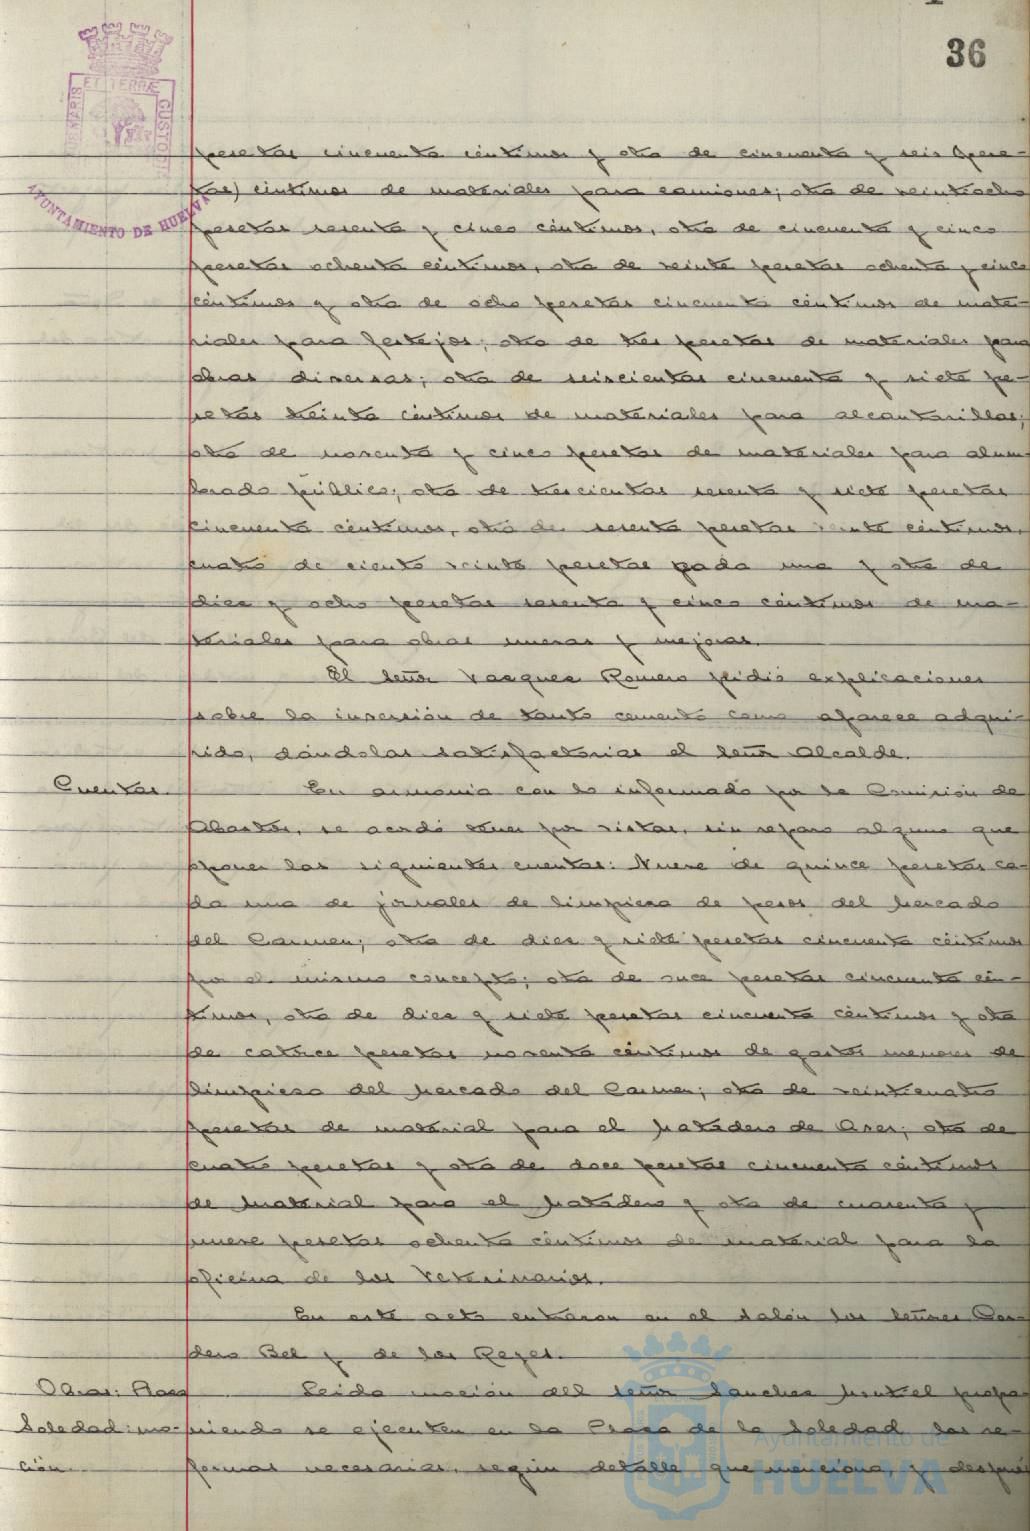 36
PORTUS MARIS ET TERRÆ CUSTODIA
AYUNTAMIENTO DE HUELVA
pesetas cincuenta céntimos y otra de cincuenta y seis (pese-
tas) céntimos de materiales para camiones; otra de veintiocho
pesetas sesenta y cinco céntimos, otra de cincuenta y cinco
pesetas ochenta céntimos, otra de veinte pesetas ochenta y cinco
céntimos y otra de ocho pesetas cincuenta céntimos de mate-
riales para festejos; otra de tres pesetas de materiales para
obras diversas; otra de seiscientas cincuenta y siete pe-
setas treinta céntimos de materiales para alcantarillas;
otra de noventa y cinco pesetas de materiales para alum-
brado público; otra de trescientas sesenta y siete pesetas
cincuenta céntimos, otra de sesenta pesetas veinte céntimos,
cuatro de ciento veinte pesetas cada una y otra de
diez y ocho pesetas sesenta y cinco céntimos de ma-
teriales para obras nuevas y mejoras.
El señor Vázquez Romero pidió explicaciones
sobre la inversión de tanto cemento como aparece adqui-
rido, dándolas satisfactorias el señor Alcalde.
Cuentas.
En armonía con lo informado por la Comisión de
Abastos, se acordó tener por vistas, sin reparo alguno que
oponer las siguientes cuentas: Nueve de quince pesetas ca-
da una de jornales de limpieza de pesos del Mercado
del Carmen; otra de diez y siete pesetas cincuenta céntimos
por el mismo concepto; otra de once pesetas cincuenta cén-
timos, otra de diez y siete pesetas cincuenta céntimos y otra
de catorce pesetas noventa céntimos de gastos menores de
limpieza del Mercado del Carmen; otra de veinticuatro
pesetas de material para el Matadero de Aves; otra de
cuatro pesetas y otra de doce pesetas cincuenta céntimos
de material para el Matadero y otra de cuarenta y
nueve pesetas ochenta céntimos de material para la
oficina de los Veterinarios.
En este acto entraron en el salón los señores Cor-
dero Bel y de los Reyes.
Obras: Plaza
Soledad: mo-
ción.
Leída moción del señor Sánchez propo-
niendo se ejecuten en la Plaza de la Soledad las re-
formas necesarias, según detalle que menciona, y después
Ayuntamiento de
HUELVA